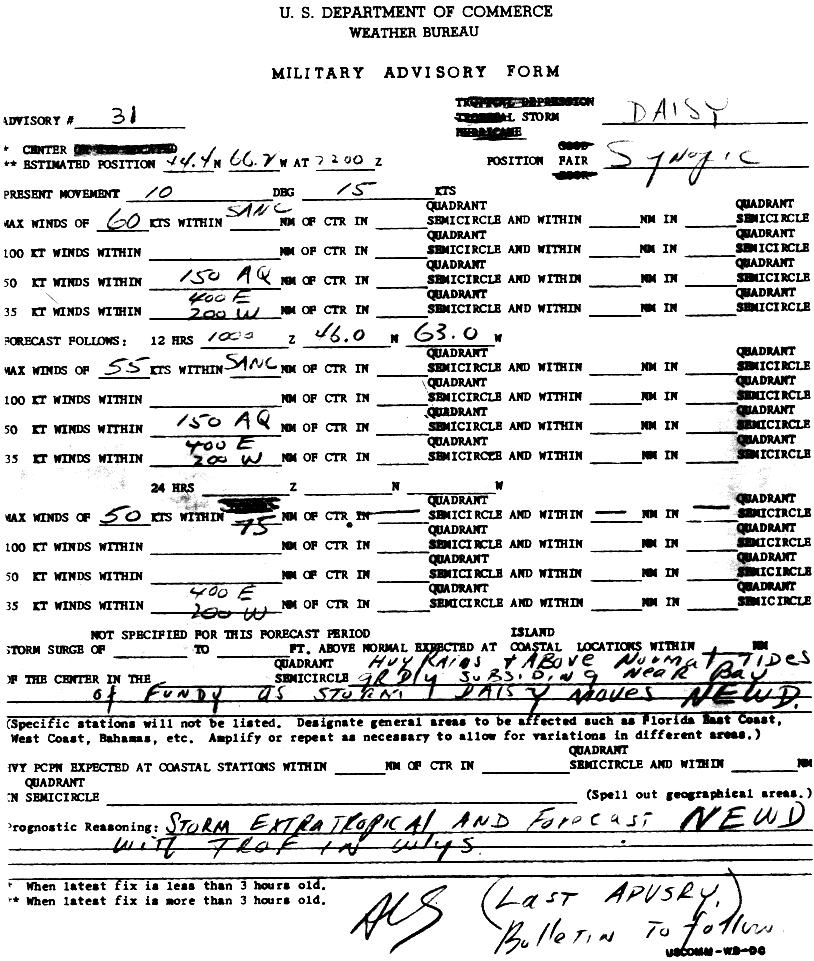 U. S. DEPARTMENT OF COMMERCE
WEATHER BUREAU
MILITARY ADVISORY FORM
ADVISORY # 31
TROPICAL DEPRESSION
STORM DAISY
HURRICANE
* CENTER
** ESTIMATED POSITION 44.4 N 66.2 W AT 2200 Z POSITION FAIR Synoptic
PRESENT MOVEMENT 10 DEG 15 KTS
QUADRANT QUADRANT
MAX WINDS OF 60 KTS WITHIN SANC NM OF CTR IN SEMICIRCLE AND WITHIN NM IN SEMICIRCLE
QUADRANT QUADRANT
100 KT WINDS WITHIN NM OF CTR IN SEMICIRCLE AND WITHIN NM IN SEMICIRCLE
QUADRANT QUADRANT
50 KT WINDS WITHIN 150 AQ NM OF CTR IN SEMICIRCLE AND WITHIN NM IN SEMICIRCLE
400 E QUADRANT QUADRANT
35 KT WINDS WITHIN 200 W NM OF CTR IN SEMICIRCLE AND WITHIN NM IN SEMICIRCLE
FORECAST FOLLOWS: 12 HRS 1000 Z 46.0 N 63.0 W
QUADRANT QUADRANT
MAX WINDS OF 55 KTS WITHIN SANC NM OF CTR IN SEMICIRCLE AND WITHIN NM IN SEMICIRCLE
QUADRANT QUADRANT
100 KT WINDS WITHIN NM OF CTR IN SEMICIRCLE AND WITHIN NM IN SEMICIRCLE
QUADRANT QUADRANT
50 KT WINDS WITHIN 150 AQ NM OF CTR IN SEMICIRCLE AND WITHIN NM IN SEMICIRCLE
400 E QUADRANT QUADRANT
35 KT WINDS WITHIN 200 W NM OF CTR IN SEMICIRCLE AND WITHIN NM IN SEMICIRCLE
24 HRS Z N W
QUADRANT QUADRANT
MAX WINDS OF 50 KTS WITHIN 75 NM OF CTR IN SEMICIRCLE AND WITHIN NM IN SEMICIRCLE
QUADRANT QUADRANT
100 KT WINDS WITHIN NM OF CTR IN SEMICIRCLE AND WITHIN NM IN SEMICIRCLE
QUADRANT QUADRANT
50 KT WINDS WITHIN NM OF CTR IN SEMICIRCLE AND WITHIN NM IN SEMICIRCLE
400 E QUADRANT QUADRANT
35 KT WINDS WITHIN 200 W NM OF CTR IN SEMICIRCLE AND WITHIN NM IN SEMICIRCLE
NOT SPECIFIED FOR THIS FORECAST PERIOD ISLAND
STORM SURGE OF TO FT. ABOVE NORMAL EXPECTED AT COASTAL LOCATIONS WITHIN NM
QUADRANT HVY RAINS + ABOVE NORMAL TIDES
OF THE CENTER IN THE SEMICIRCLE GRDLY SUBSIDING NEAR BAY
OF FUNDY AS STORM DAISY MOVES NEWD.
(Specific stations will not be listed. Designate general areas to be affected such as Florida East Coast,
West Coast, Bahamas, etc. Amplify or repeat as necessary to allow for variations in different areas.)
QUADRANT
HVY PCPN EXPECTED AT COASTAL STATIONS WITHIN NM OF CTR IN SEMICIRCLE AND WITHIN NM
QUADRANT
IN SEMICIRCLE (Spell out geographical areas.)
Prognostic Reasoning: STORM EXTRATROPICAL AND Forecast NEWD
WITH TROF IN WLYS.
* When latest fix is less than 3 hours old.
** When latest fix is more than 3 hours old.
(LAST ADVSRY.)
Bulletin To follow
USCOMM-WB-DC